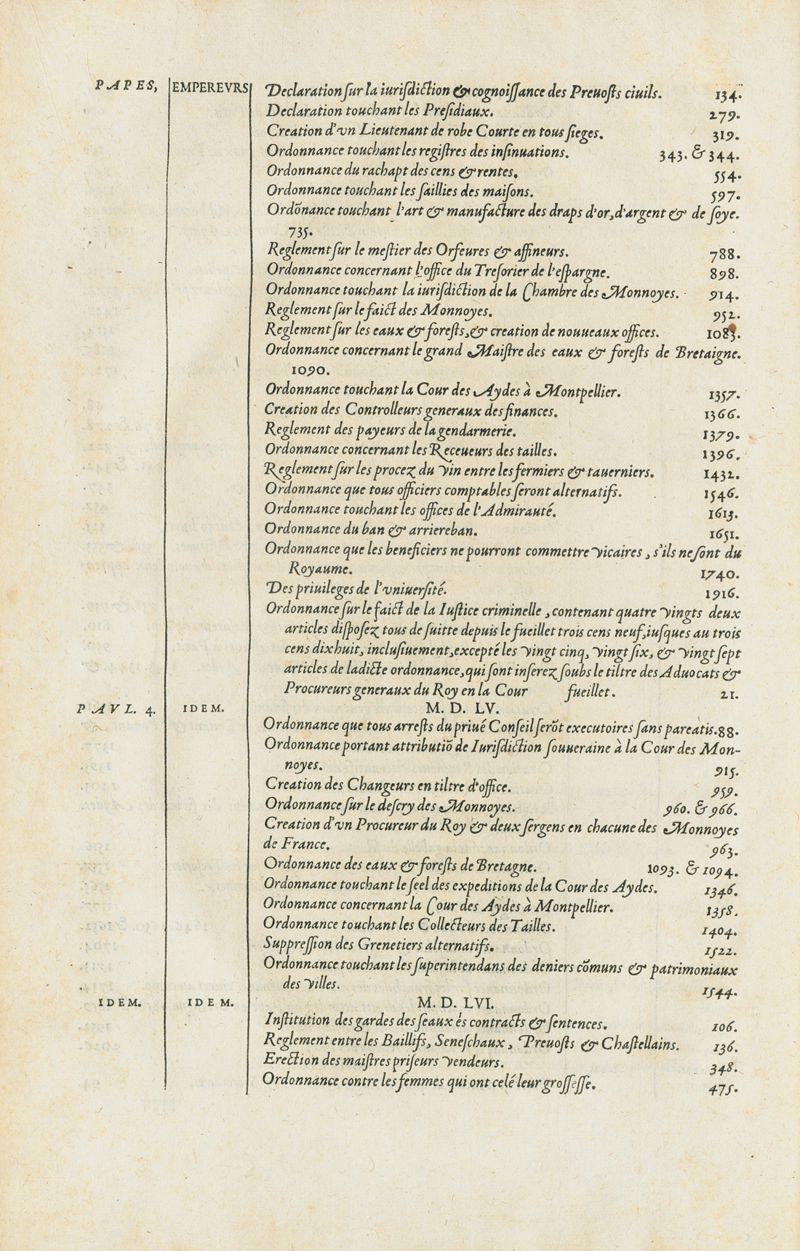 PAPES, EMPEREVRS Declaration ſur la iuriſdiction & cognoiſſance des Preuoſts ciuils. 134.
Declaration touchant les Preſidiaux. 279.
Creation d'vn Lieutenant de robe Courte en tous ſieges. 319.
Ordonnance touchant les regiſtres des inſinuations. 343. & 344.
Ordonnance du rachapt des cens & rentes. 554.
Ordonnance touchant les ſaillies des maiſons. 597.
Ordõnance touchant l'art & manufacture des draps d'or, d'argent & de ſoye.
735.
Reglement ſur le meſtier des Orfeures & affineurs. 788.
Ordonnance concernant l'office du Treſorier de l'eſpargne. 898.
Ordonnance touchant la iuriſdiction de la Chambre des Monnoyes. 914.
Reglement ſur le faict des Monnoyes. 952.
Reglement ſur les eaux & foreſts, & creation de nouueaux offices. 1083.
Ordonnance concernant le grand Maiſtre des eaux & foreſts de Bretaigne.
1090.
Ordonnance touchant la Cour des Aydes à Montpellier. 1357.
Creation des Controlleurs generaux des finances. 1366.
Reglement des payeurs de la gendarmerie. 1379.
Ordonnance concernant les Receueurs des tailles. 1396.
Reglement ſur les procez du vin entre les fermiers & tauerniers. 1432.
Ordonnance que tous officiers comptables ſeront alternatifs. 1546.
Ordonnance touchant les offices de l'Admirauté. 1613.
Ordonnance du ban & arriereban. 1651.
Ordonnance que les beneficiers ne pourront commettre vicaires, s'ils ne ſont du
Royaume. 1740.
Des priuileges de l'vniuerſité. 1916.
Ordonnance ſur le faict de la Iuſtice criminelle, contenant quatre vingts deux
articles diſpoſez tous de ſuitte depuis le fueillet trois cens neuf, iuſques au trois
cens dixhuit, incluſiuement, excepté les vingt cinq, vingt ſix, & vingt ſept
articles de ladicte ordonnance, qui ſont inſerez ſoubs le tiltre des Aduocats &
Procureurs generaux du Roy en la Cour fueillet. 21.
PAVL. 4. IDEM. M. D. LV.
Ordonnance que tous arreſts du priué Conſeil ſerõt executoires ſans pareatis. 88.
Ordonnance portant attributiõ de Iuriſdiction ſouueraine à la Cour des Mon-
noyes. 915.
Creation des Changeurs en tiltre d'office. 959.
Ordonnance ſur le deſcry des Monnoyes. 960. & 966.
Creation d'vn Procureur du Roy & deux ſergens en chacune des Monnoyes
de France. 963.
Ordonnance des eaux & foreſts de Bretagne. 1093. & 1094.
Ordonnance touchant le ſeel des expeditions de la Cour des Aydes. 1346.
Ordonnance concernant la Cour des Aydes à Montpellier. 1358.
Ordonnance touchant les Collecteurs des Tailles. 1404.
Suppreſſion des Grenetiers alternatifs. 1522.
Ordonnance touchant les ſuperintendans des deniers cõmuns & patrimoniaux
des villes. 1544.
IDEM. IDEM. M. D. LVI.
Inſtitution des gardes des ſeaux és contracts & ſentences. 106.
Reglement entre les Baillifs, Seneſchaux, Preuoſts & Chaſtellains. 136.
Erection des maiſtres priſeurs vendeurs. 348.
Ordonnance contre les femmes qui ont celé leur groſſeſſe. 475.